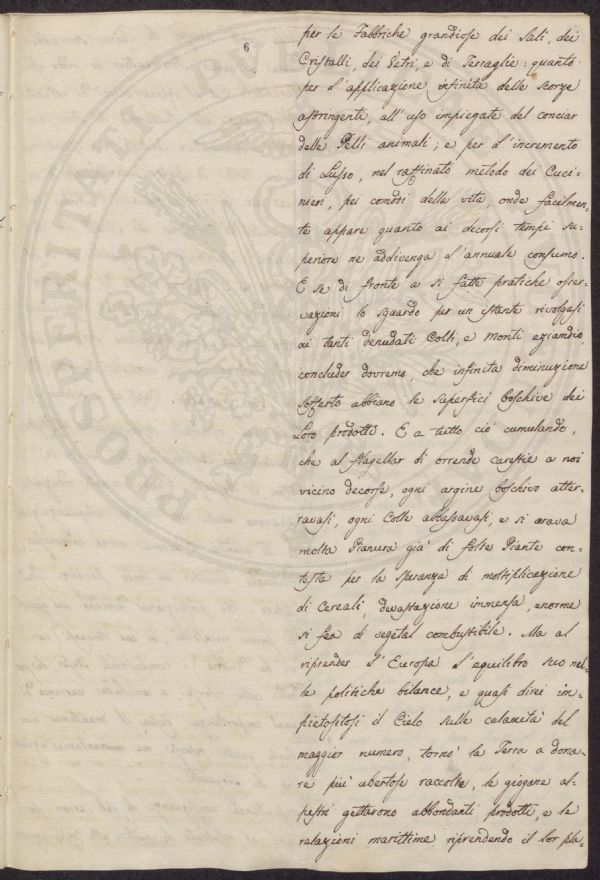 6
per le Fabbriche grandiose dei Sali, dei
Cristalli, dei Vetri, e di Terraglie: quanto
per l'applicazione infinita delle scorze
astringenti, all'uso impiegate del conciar
delle Pelli animali; e per l'incremento
di Lusso, nel raffinato metodo dei Cuci-
nieri, pei comodi della vita onde facilmen-
te appare quanto ai decorsi tempi su-
periore ne addivenga l'annuale consumo.
E se di fronte a si fatte pratiche osser-
vazioni lo sguardo per un istante rivolgasi
ai tanti denudati Colli, e Monti eziandio,
concluder dovremo, che infinita diminuzione
sofferto abbiano le superfici boschive dei
Loro prodotti. E a tutto ciò cumulando,
che al flagellar di orrende carestie a noi
vicino decorse, ogni argine boschivo atter-
ravasi, ogni Colle abbassavasi, e si arava
molta Pianura già di folte Piante con-
testa per la speranza di moltiplicazione
di Cereali, devastazione immensa, enorme
si fea di vegetal combustibile. Ma al
riprender l'Europa l'equilibro suo nel-
le politiche bilance, e quasi direi im-
pietositosi il Cielo sulle calamità del
maggior numero, tornò la Terra a dona-
re più ubertose raccolte, le giogane al-
pestri gettarono abbondanti prodotti, e le
ralazioni marittime riprendendo il lor pla-
PROSPERITATI